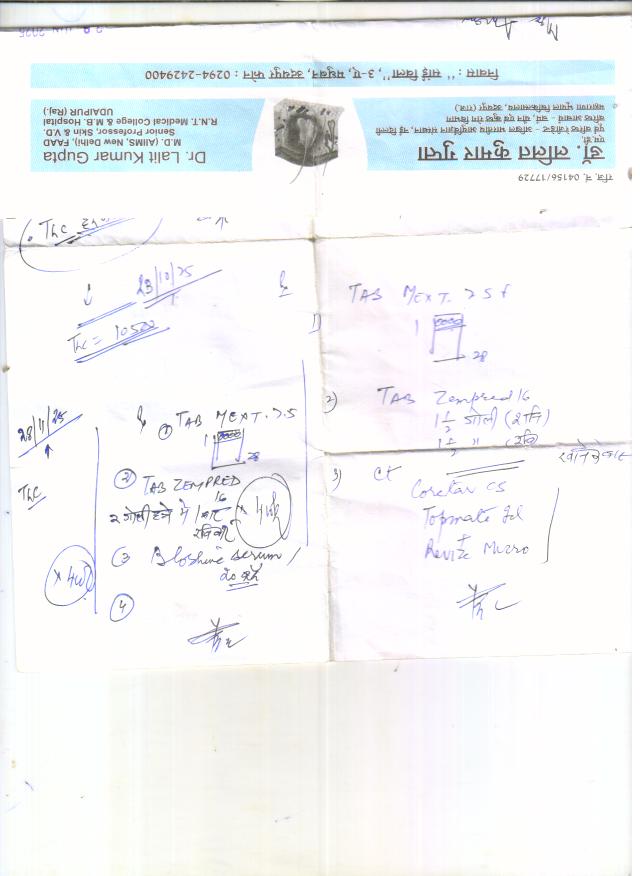 Mrs
29 JUN 2025
निवास : "साईं विला", 3-ए, मधुबन, उदयपुर फोन : 0294-2429400
डॉ. ललित कुमार गुप्ता
एम.डी.
पूर्व वरिष्ठ रेजीडेन्ट - अखिल भारतीय आयुर्विज्ञान संस्थान, नई दिल्ली
वरिष्ठ आचार्य - चर्म, यौन एवं कुष्ठ रोग विभाग
महाराणा भूपाल चिकित्सालय, उदयपुर (राज.)
रजि. नं. 04156/17729
Dr. Lalit Kumar Gupta
M.D. (AIIMS, New Delhi), FAAD
Senior Professor, Skin & V.D.
R.N.T. Medical College & M.B. Hospital
UDAIPUR (Raj.)
TLC
23/10/25
TLC = 10500
28/11/25
TLC
× 4 wk
① TAB MEXT. 7.5
1
28
② TAB ZEMPRED
16
2 गोली हफ्ते में 1 बार
रविवार
× 4 wk
③ Bloshine serum
④
1)
TAB MEXT. 7.5
1
28
2) TAB Zempred 16
1 1/2 गोली (शनि)
1 1/2 " (रवि)
3) Ct
Coretar CS
Topmate
+
Revize Micro